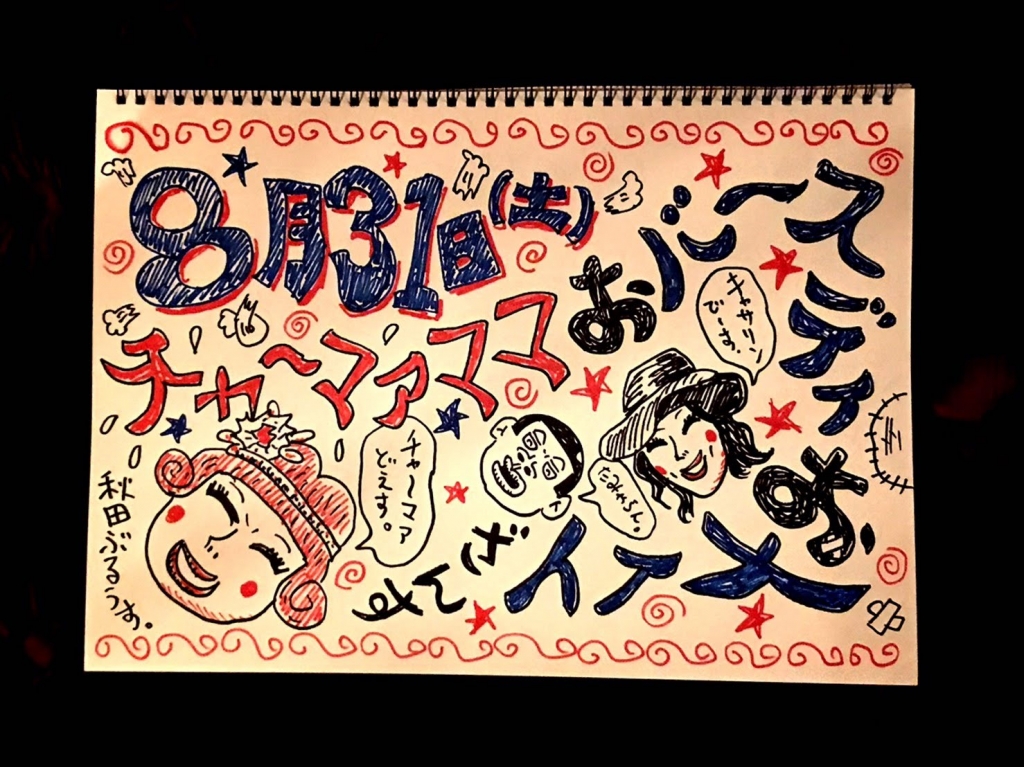 8月31日(土)
チャ〜マァママ
おバ〜スディ
お、メァイ
ざんす
キャサリン
でーす。
チャ〜マァ
どえす。
秋田ぶるうす。